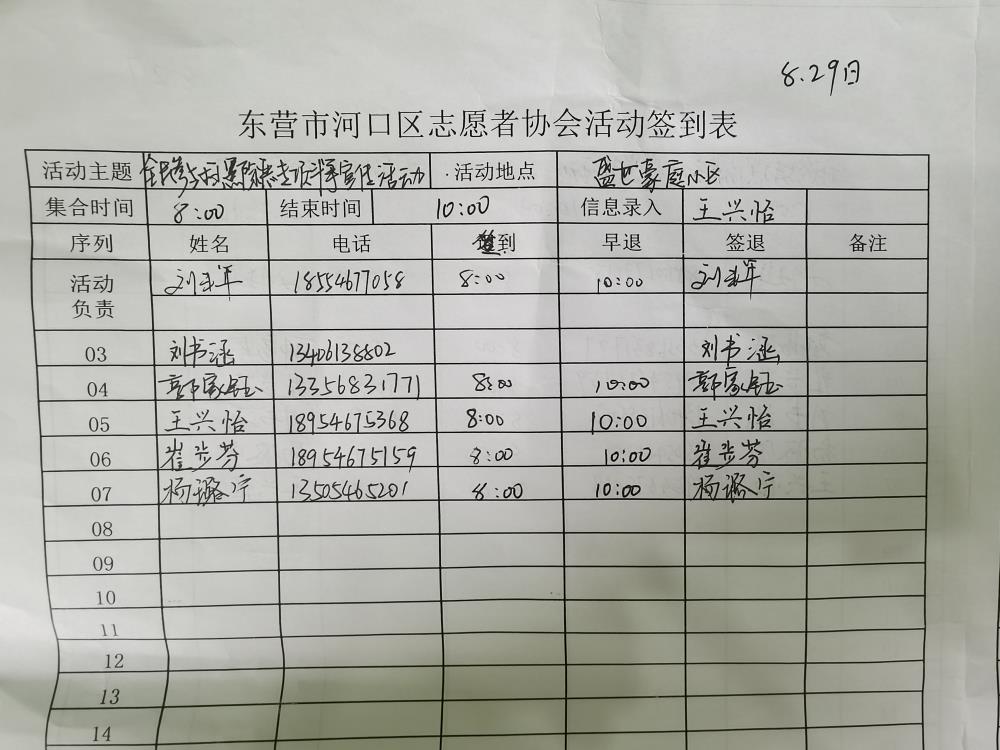 8.29日
东营市河口区志愿者协会活动签到表
活动主题 全民参与 扫黑除恶专项斗争宣传活动 活动地点 盛世豪庭小区
集合时间 8:00 结束时间 10:00 信息录入 王兴怡
序列 姓名 电话 签到 早退 签退 备注
活动负责 刘 年 18554677058 8:00 10:00 刘 年
03 刘书涵 13406138802 刘书涵
04 郭家钰 13356831771 8:00 10:00 郭家钰
05 王兴怡 18954675368 8:00 10:00 王兴怡
06 崔步芬 18954675159 8:00 10:00 崔步芬
07 杨璐宁 13505465201 8:00 10:00 杨璐宁
08
09
10
11
12
13
14